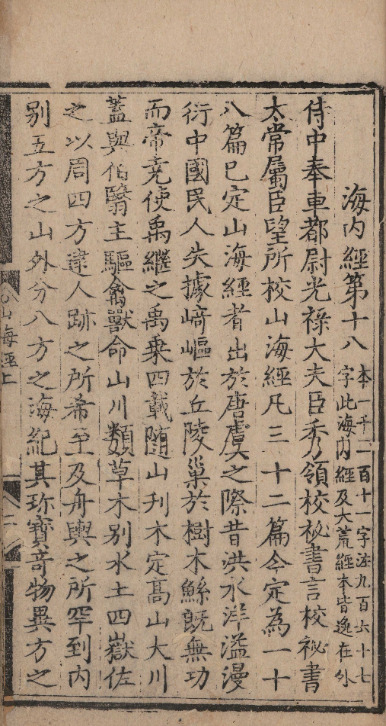 海内經第十八 本一千一百十一字注九百六十七
字此海内經及大荒經本皆逸在外
侍中奉車都尉光祿大夫臣秀領校祕書言校祕書
太常屬臣望所校山海經凡三十二篇今定為一十
八篇已定山海經者出於唐虞之際昔洪水洋溢漫
衍中國民人失據崎嶇於丘陵巢於樹木鯀既無功
而帝堯使禹繼之禹乗四載随山刋木定髙山大川
蓋與伯翳主驅禽獸命山川類草木别水土四嶽佐
之以周四方逮人跡之所希至及舟輿之所罕到内
别五方之山外分八方之海紀其珍寶竒物異方之
山海經上